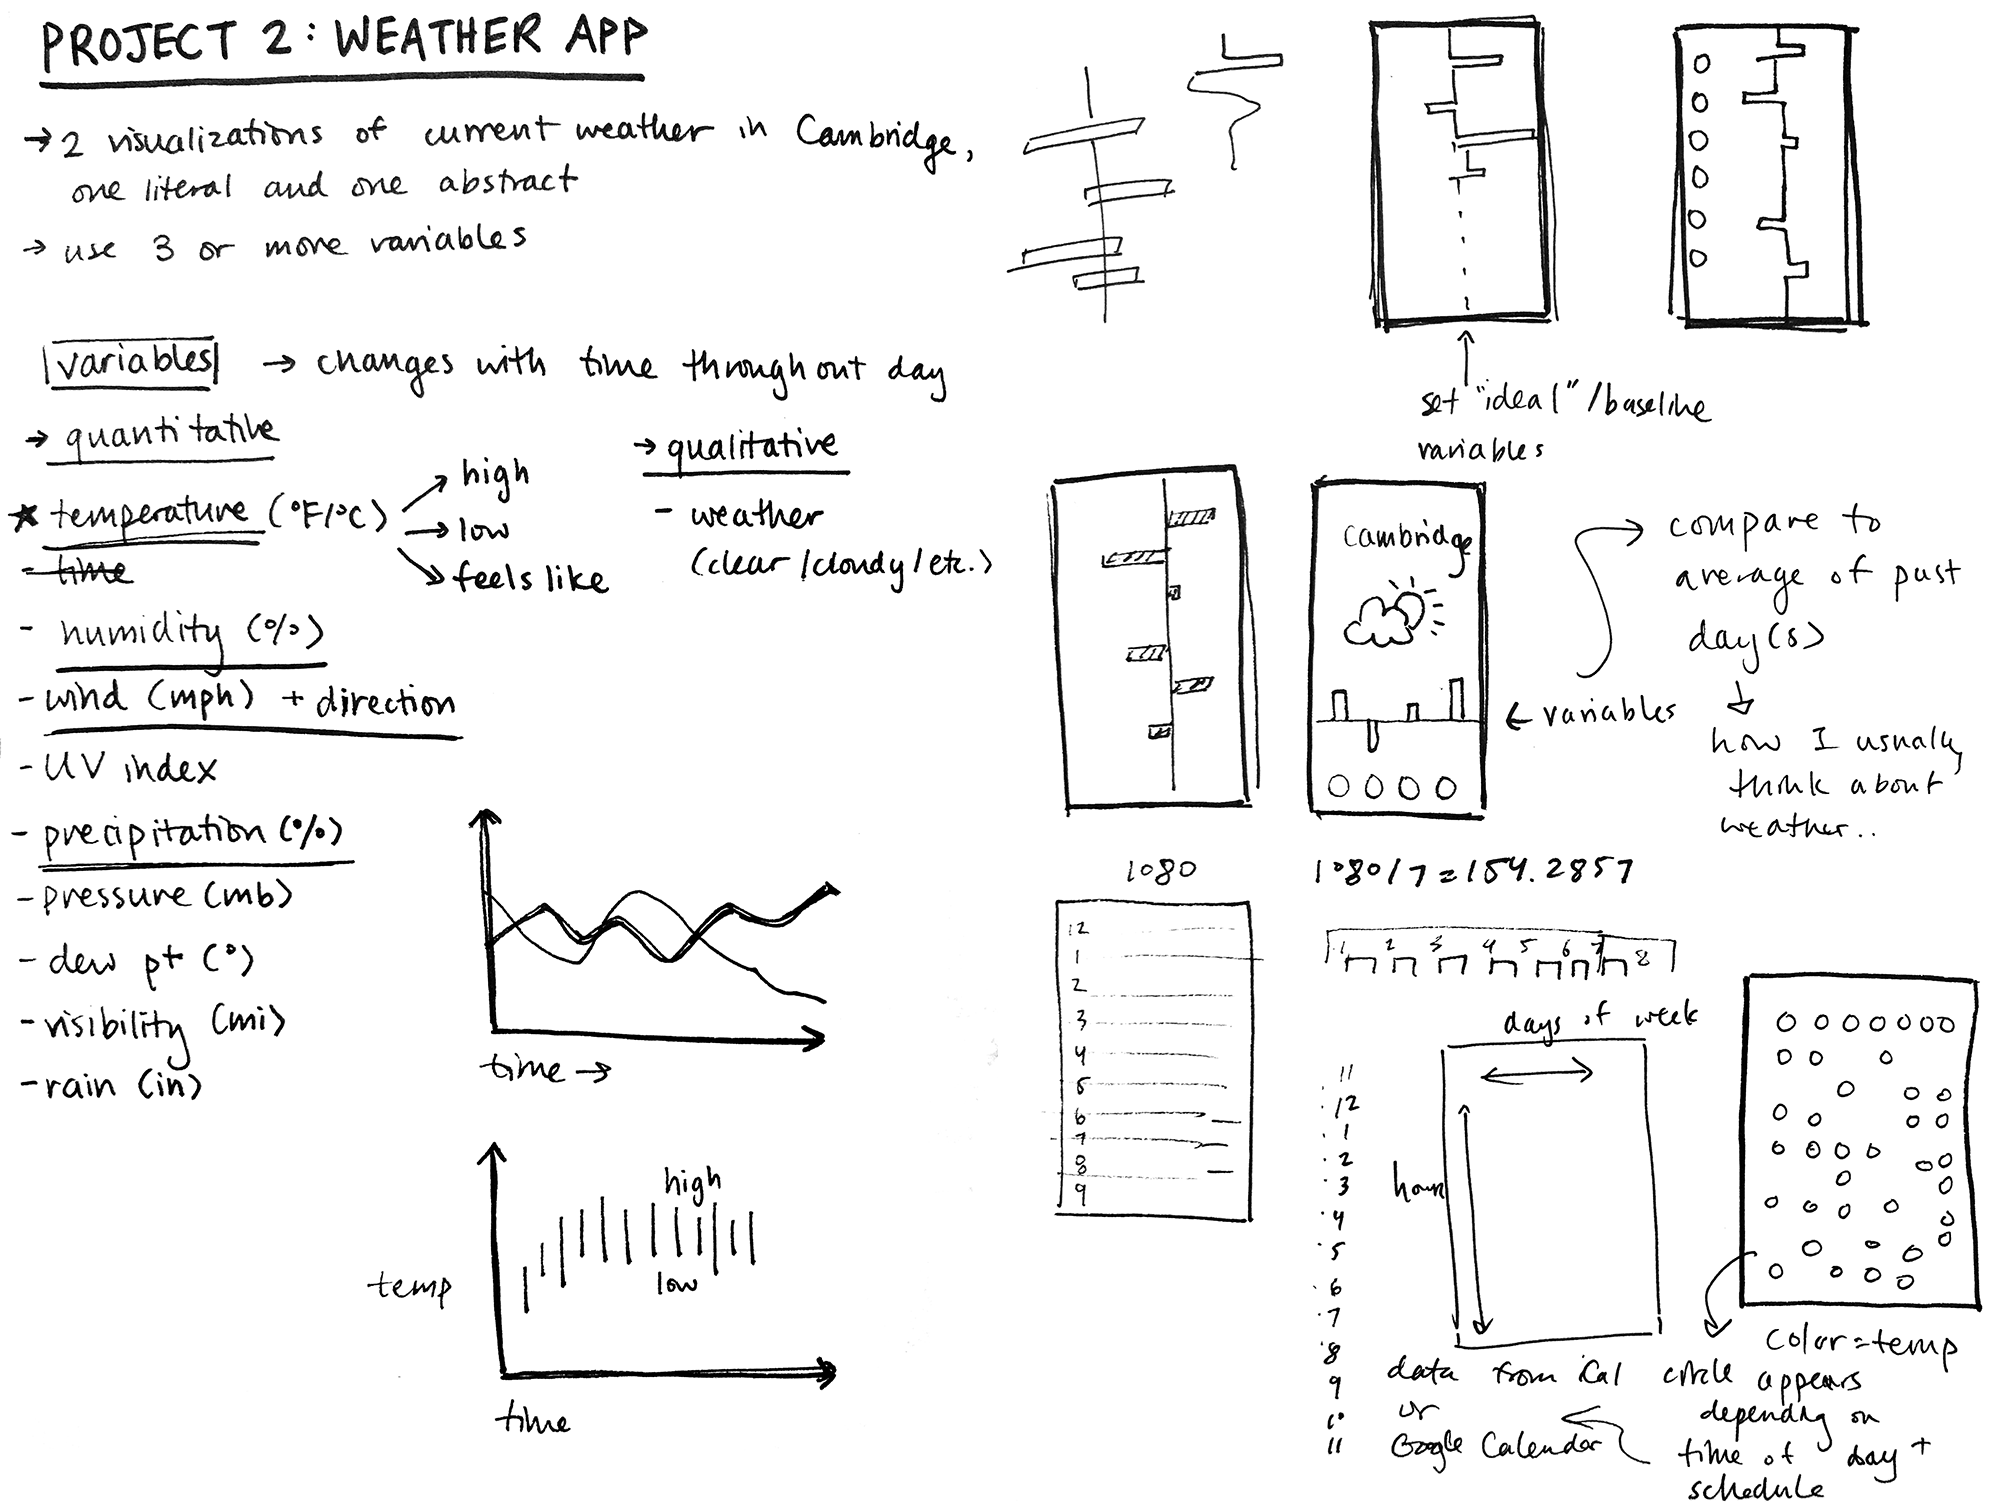 PROJECT 2: WEATHER APP
→ 2 visualizations of current weather in Cambridge,
one literal and one abstract
→ use 3 or more variables
variables → changes with time throughout day
→ quantitative
★ temperature (°F/°C)
high
low
feels like
- time
- humidity (%)
- wind (mph) + direction
- UV index
- precipitation (%)
- pressure (mb)
- dew pt (°)
- visibility (mi)
- rain (in)
→ qualitative
- weather
(clear/cloudy/etc.)
time →
high
low
temp
time
set "ideal"/baseline
variables
Cambridge
← variables
compare to
average of past
day(s)
how I usually
think about
weather..
1080
12
1
2
3
4
5
6
7
8
9
1080/7=154.2857
1 2 3 4 5 6 7 8
days of week
hours
11
12
1
2
3
4
5
6
7
8
9
10
11
data from iCal
or
Google Calendar
color=temp
circle appears
depending on
time of day +
schedule